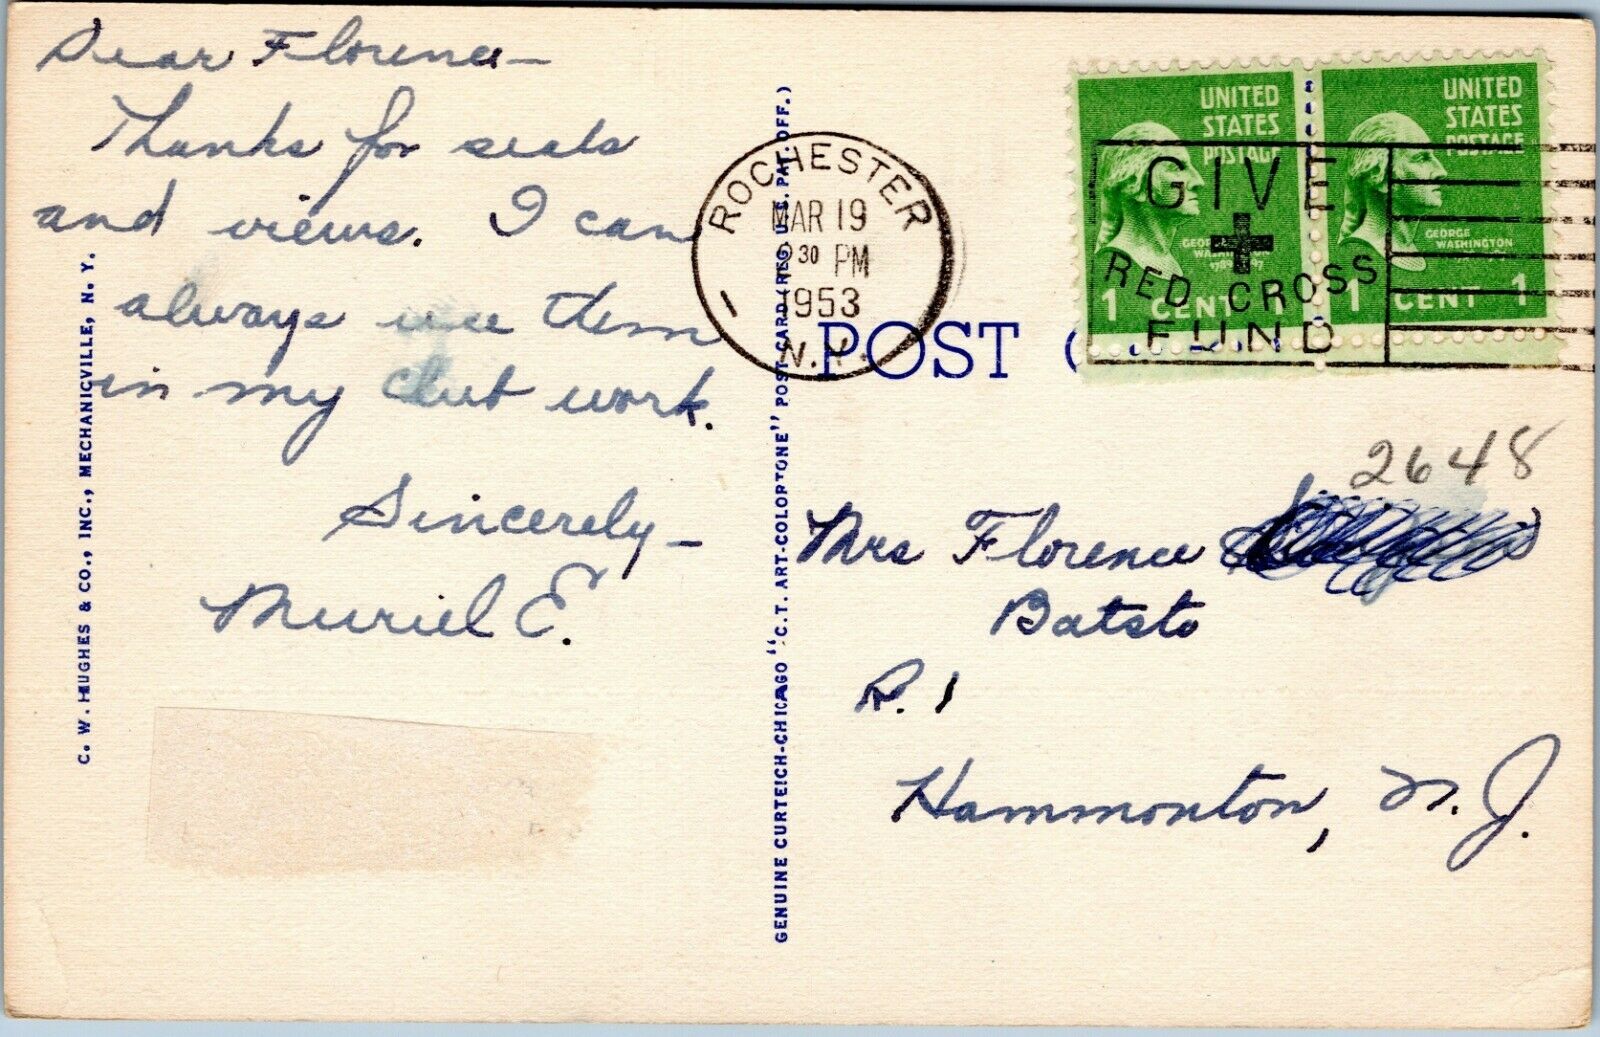 Dear Florence—
Thanks for seals
and views. I can
always use them
in my club work.
Sincerely—
Muriel E.
C. W. HUGHES & CO., INC., MECHANICVILLE, N. Y.
GENUINE CURTEICH-CHICAGO "C. T. ART-COLORTONE" POST CARD (REG. U.S. PAT. OFF.)
ROCHESTER
MAR 19
30 PM
1953
N.Y.
1
POST
UNITED
STATES
POSTAGE
GEORGE
WASHINGTON
1 CENT 1
UNITED
STATES
POSTAGE
GEORGE
WASHINGTON
1 CENT 1
GIVE
RED CROSS
FUND
2648
Mrs Florence
Batsto
R. 1
Hammonton, N. J.